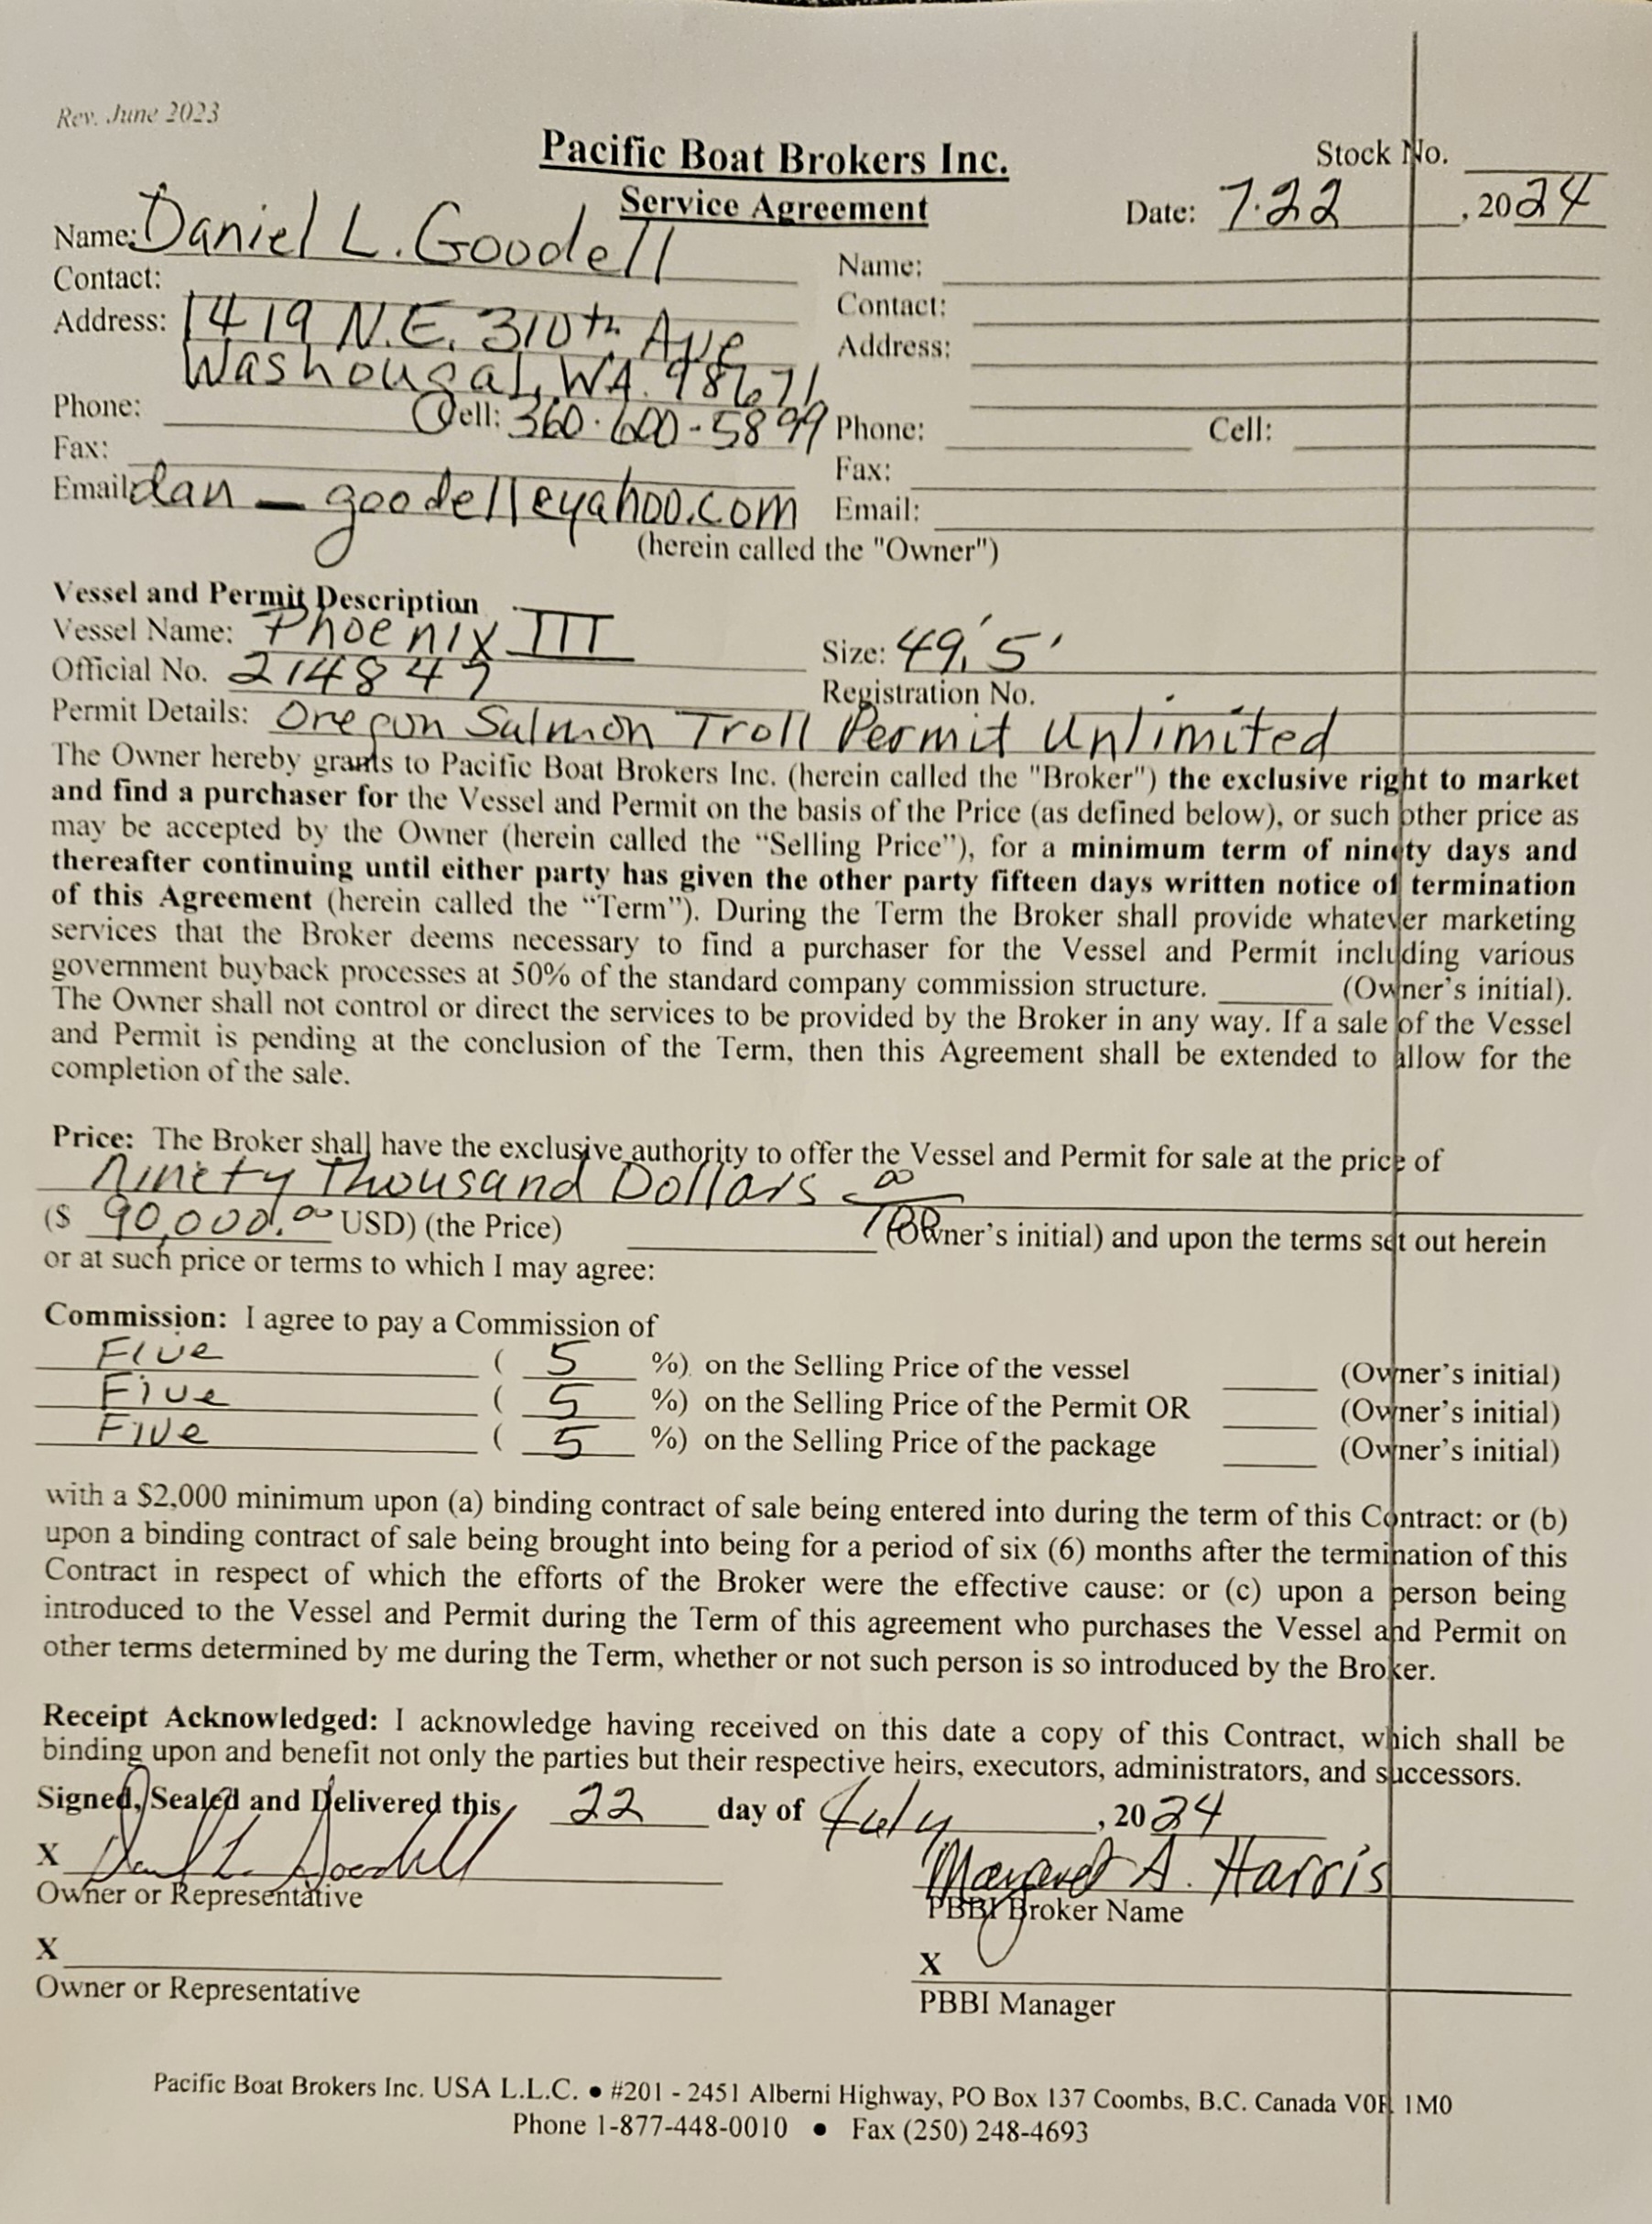 Rev. June 2023
Pacific Boat Brokers Inc.
Stock No.
Service Agreement
Date: 7.22, 2024
Name: Daniel L. Goodell
Name:
Contact:
Contact:
Address: 1419 N.E. 310th Ave
Address:
Washougal, WA. 98671
Phone: Cell: 360.600-5899
Phone: Cell:
Fax:
Fax:
Email: dan_goodell@yahoo.com
Email:
(herein called the "Owner")
Vessel and Permit Description
Vessel Name: Phoenix III
Size: 49.5'
Official No. 214847
Registration No.
Permit Details: Oregon Salmon Troll Permit Unlimited
The Owner hereby grants to Pacific Boat Brokers Inc. (herein called the "Broker") the exclusive right to market
and find a purchaser for the Vessel and Permit on the basis of the Price (as defined below), or such other price as
may be accepted by the Owner (herein called the “Selling Price”), for a minimum term of ninety days and
thereafter continuing until either party has given the other party fifteen days written notice of termination
of this Agreement (herein called the “Term”). During the Term the Broker shall provide whatever marketing
services that the Broker deems necessary to find a purchaser for the Vessel and Permit including various
government buyback processes at 50% of the standard company commission structure. ______ (Owner’s initial).
The Owner shall not control or direct the services to be provided by the Broker in any way. If a sale of the Vessel
and Permit is pending at the conclusion of the Term, then this Agreement shall be extended to allow for the
completion of the sale.
Price: The Broker shall have the exclusive authority to offer the Vessel and Permit for sale at the price of
Ninety Thousand Dollars 00/100
($ 90,000.00 USD) (the Price) ______ (Owner’s initial) and upon the terms set out herein
or at such price or terms to which I may agree:
Commission: I agree to pay a Commission of
Five ( 5 %) on the Selling Price of the vessel ______ (Owner’s initial)
Five ( 5 %) on the Selling Price of the Permit OR ______ (Owner’s initial)
Five ( 5 %) on the Selling Price of the package ______ (Owner’s initial)
with a $2,000 minimum upon (a) binding contract of sale being entered into during the term of this Contract: or (b)
upon a binding contract of sale being brought into being for a period of six (6) months after the termination of this
Contract in respect of which the efforts of the Broker were the effective cause: or (c) upon a person being
introduced to the Vessel and Permit during the Term of this agreement who purchases the Vessel and Permit on
other terms determined by me during the Term, whether or not such person is so introduced by the Broker.
Receipt Acknowledged: I acknowledge having received on this date a copy of this Contract, which shall be
binding upon and benefit not only the parties but their respective heirs, executors, administrators, and successors.
Signed, Sealed and Delivered this 22 day of July, 2024
X Daniel L. Goodell
Margaret A. Harris
Owner or Representative
PBBI Broker Name
X
X
Owner or Representative
PBBI Manager
Pacific Boat Brokers Inc. USA L.L.C. ● #201 - 2451 Alberni Highway, PO Box 137 Coombs, B.C. Canada V0R 1M0
Phone 1-877-448-0010 ● Fax (250) 248-4693